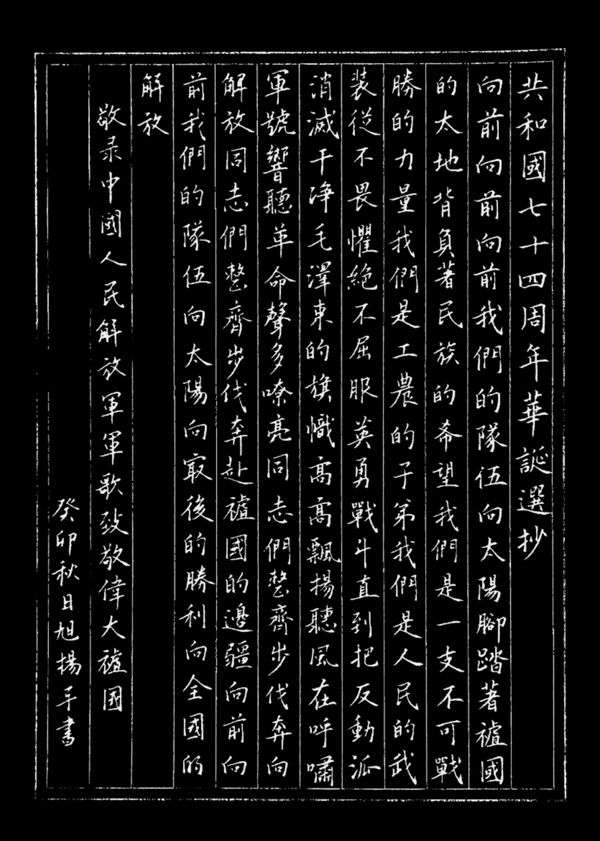 共和國七十四周年華誕選抄
向前向前向前我們的隊伍向太陽腳踏著祖國
的太地背負著民族的希望我們是一支不可戰
勝的力量我們是工農的子弟我們是人民的武
装從不畏懼絶不屈服英勇戰斗直到把反動派
消滅干净毛澤東的旗幟高高飄揚聽風在呼嘯
軍號響聽革命聲多嘹亮同志們整齊步伐奔向
解放同志們整齊步伐奔赴祖國的邊疆向前向
前我們的隊伍向太陽向最後的勝利向全國的
解放
敬录中國人民解放軍軍歌致敬偉大祖国
癸卯秋日旭揚手書